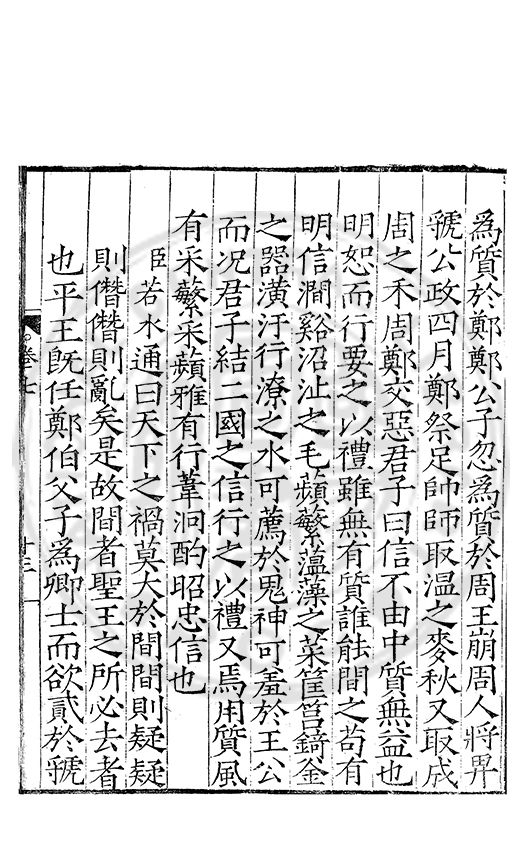 為質於鄭鄭公子忽為質於周王崩周人將畀
虢公政四月鄭祭足帥師取溫之麥秋又取成
周之禾周鄭交惡君子曰信不由中質無益也
明恕而行要之以禮雖無有質誰能間之苟有
明信澗谿沼沚之毛蘋蘩薀藻之菜筐筥錡釜
之器潢汙行潦之水可薦於鬼神可羞於王公
而况君子結二國之信行之以禮又焉用質風
有采蘩采蘋雅有行葦泂酌昭忠信也
臣若水通曰天下之禍莫大於間間則疑疑
則僭僭則亂矣是故間者聖王之所必去者
也平王旣任鄭伯父子為卿士而欲貳於虢
卷七
十三